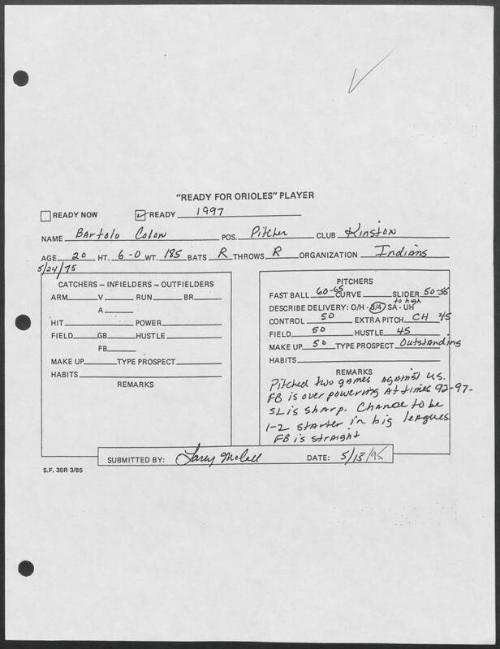 "READY FOR ORIOLES" PLAYER
READY NOW READY 1997
NAME Bartolo Colon POS. Pitcher CLUB Kinston
AGE 20 HT. 6-0 WT. 185 BATS R THROWS R ORGANIZATION Indians
5/24/75
CATCHERS – INFIELDERS – OUTFIELDERS
ARM V RUN BR
A
HIT POWER
FIELD GB HUSTLE
FB
MAKE UP TYPE PROSPECT
HABITS
REMARKS
PITCHERS
FAST BALL 60-65 CURVE SLIDER 50-55
DESCRIBE DELIVERY: O/H - 3/4 - SA - UH to high
CONTROL 50 EXTRA PITCH CH 45
FIELD 50 HUSTLE 45
MAKE UP 50 TYPE PROSPECT Outstanding
HABITS
REMARKS
Pitched two games against us.
FB is over powering at times 92-97.
SL is sharp. Chance to be
1-2 starter in big leagues
FB is straight
SUBMITTED BY: Larry McCall DATE: 5/13/95
S.F. 3ER 3/85